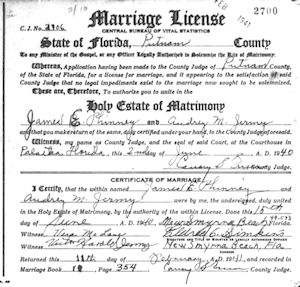 FEB 1941 2700
Marriage License
CENTRAL BUREAU OF VITAL STATISTICS
C. J. No. 2706
State of Florida, Putnam County
To any Minister of the Gospel, or any Officer Legally Authorized to Solemnize the Rite of Matrimony:
Whereas, Application having been made to the County Judge of Putnam County,
of the State of Florida, for a license for marriage, and it appearing to the satisfaction of said
County Judge that no legal impediments exist to the marriage now sought to be solemnized,
These are, Therefore, To authorize you to unite in the
Holy Estate of Matrimony
James E Phinney and Audrey M. Jermy
and that you make return of the same, duly certified under your hand, to the County Judge aforesaid.
Witness, my name as County Judge, and the seal of said Court, at the Courthouse
Palatka Florida, this day of June A. D. 1940
County Judge
CERTIFICATE OF MARRIAGE
I Certify, that the within named James E. Phinney and
Audrey M. Jermy were by me, the undersigned, duly united
in the Holy Estate of Matrimony, by the authority of the within License. Done this 15th
day of June A. D. 1940, New Smyrna Beach, Florida
Witness Vera
Witness
New Smyrna Beach, Fla
Returned this 11th day of February A. D. 1941.
Marriage Book page 354 County Judge